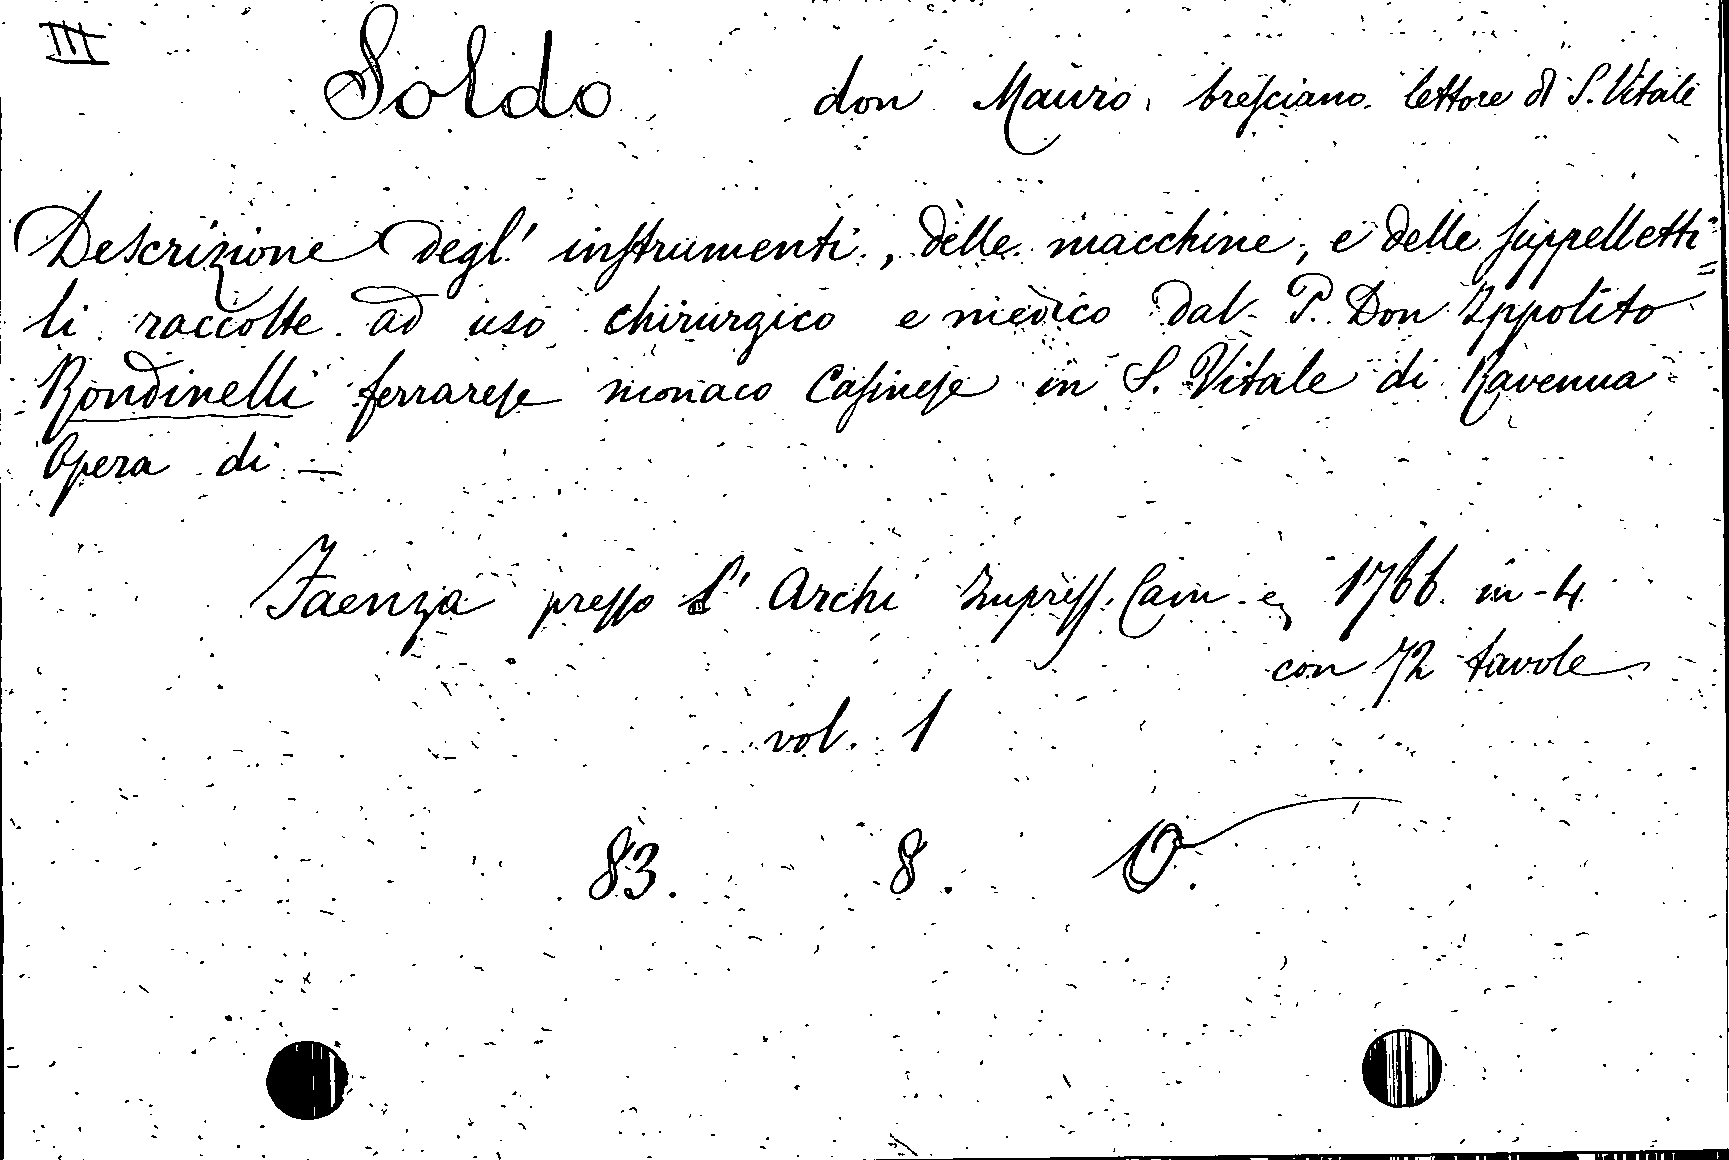 III
Soldo don Mauro, bresciano. lettore di S. Vitale
Descrizione degl' instrumenti, delle macchine, e delle suppelletti=
li raccolte ad uso chirurgico e medico dal P. Don Ippolito
Rondinelli ferrarese monaco Casinese in S. Vitale di Ravenna
Opera di —
Faenza presso l' Archi Impress. Cam. e 1766. in-4
con 72 tavole
vol. 1
83. 8. O.